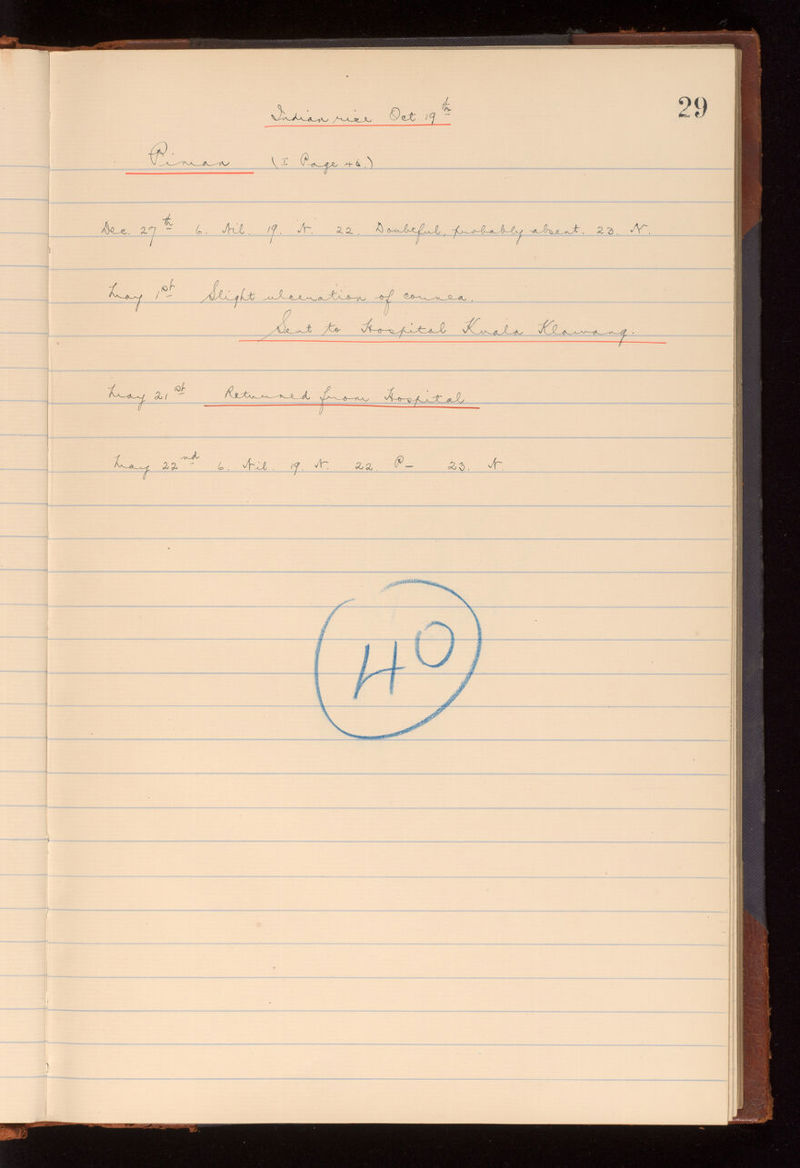 29
Indian rice Oct 19th
Piman (I Page 46.)
Dec. 27th 6. Nil. 19. N. 22. Doubtful, probably absent. 23. N.
May 1st Slight ulceration of cornea.
Sent to Hospital Kuala Klawang.
May 21st Returned from Hospital
May 22nd 6. Nil. 19. N. 22. P– 23. N
40